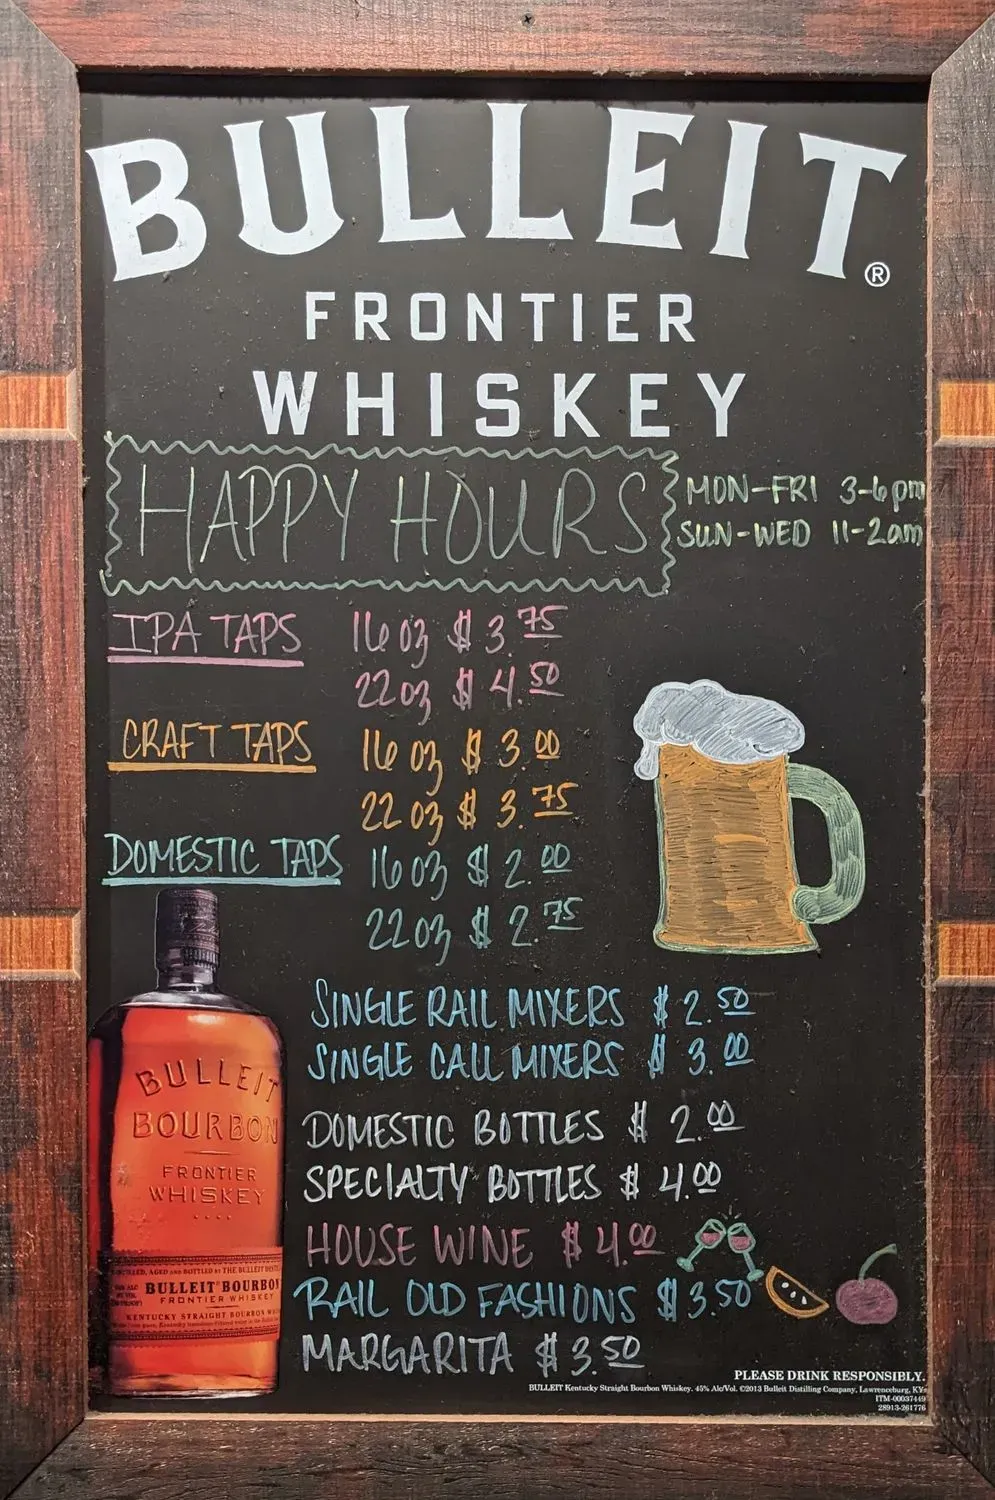 BULLEIT®
FRONTIER
WHISKEY
HAPPY HOURS
MON-FRI 3-6pm
SUN-WED 11-2am
IPA TAPS 16oz $3.75
22oz $4.50
CRAFT TAPS 16oz $3.00
22oz $3.75
DOMESTIC TAPS 16oz $2.00
22oz $2.75
SINGLE RAIL MIXERS $2.50
SINGLE CALL MIXERS $3.00
DOMESTIC BOTTLES $2.00
SPECIALTY BOTTLES $4.00
HOUSE WINE $4.00
RAIL OLD FASHIONS $3.50
MARGARITA $3.50
BULLEIT
BOURBON
FRONTIER
WHISKEY
DISTILLED, AGED AND BOTTLED BY THE BULLEIT
BULLEIT BOURBON
FRONTIER WHISKEY
KENTUCKY STRAIGHT BOURBON
PLEASE DRINK RESPONSIBLY.
BULLEIT Kentucky Straight Bourbon Whiskey. 45% Alc/Vol. ©2013 Bulleit Distilling Company, Lawrenceburg, KY.
ITM-00037449
28913-261776